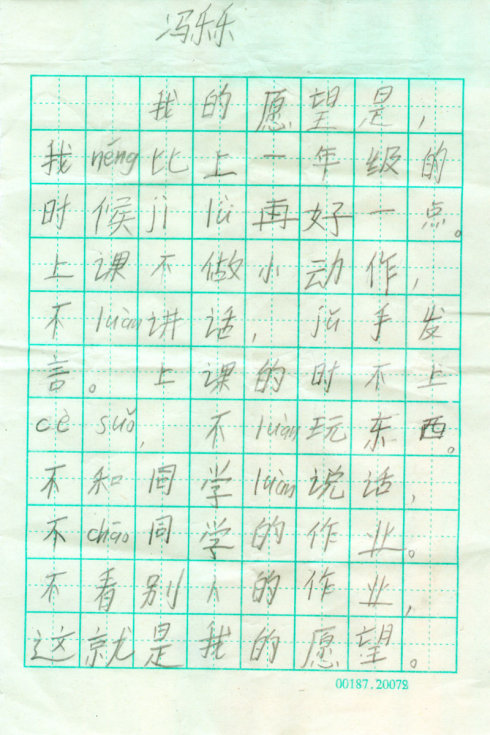 冯乐乐
我的愿望是，
我néng比上一年级的
时候jì lǜ再好一点。
上课不做小动作，
不luàn讲话，jǔ手发
言。上课的时不上
cè suǒ，不luàn玩东西。
不和同学luàn说话，
不chāo同学的作业。
不看别人的作业，
这就是我的愿望。
00187.20072